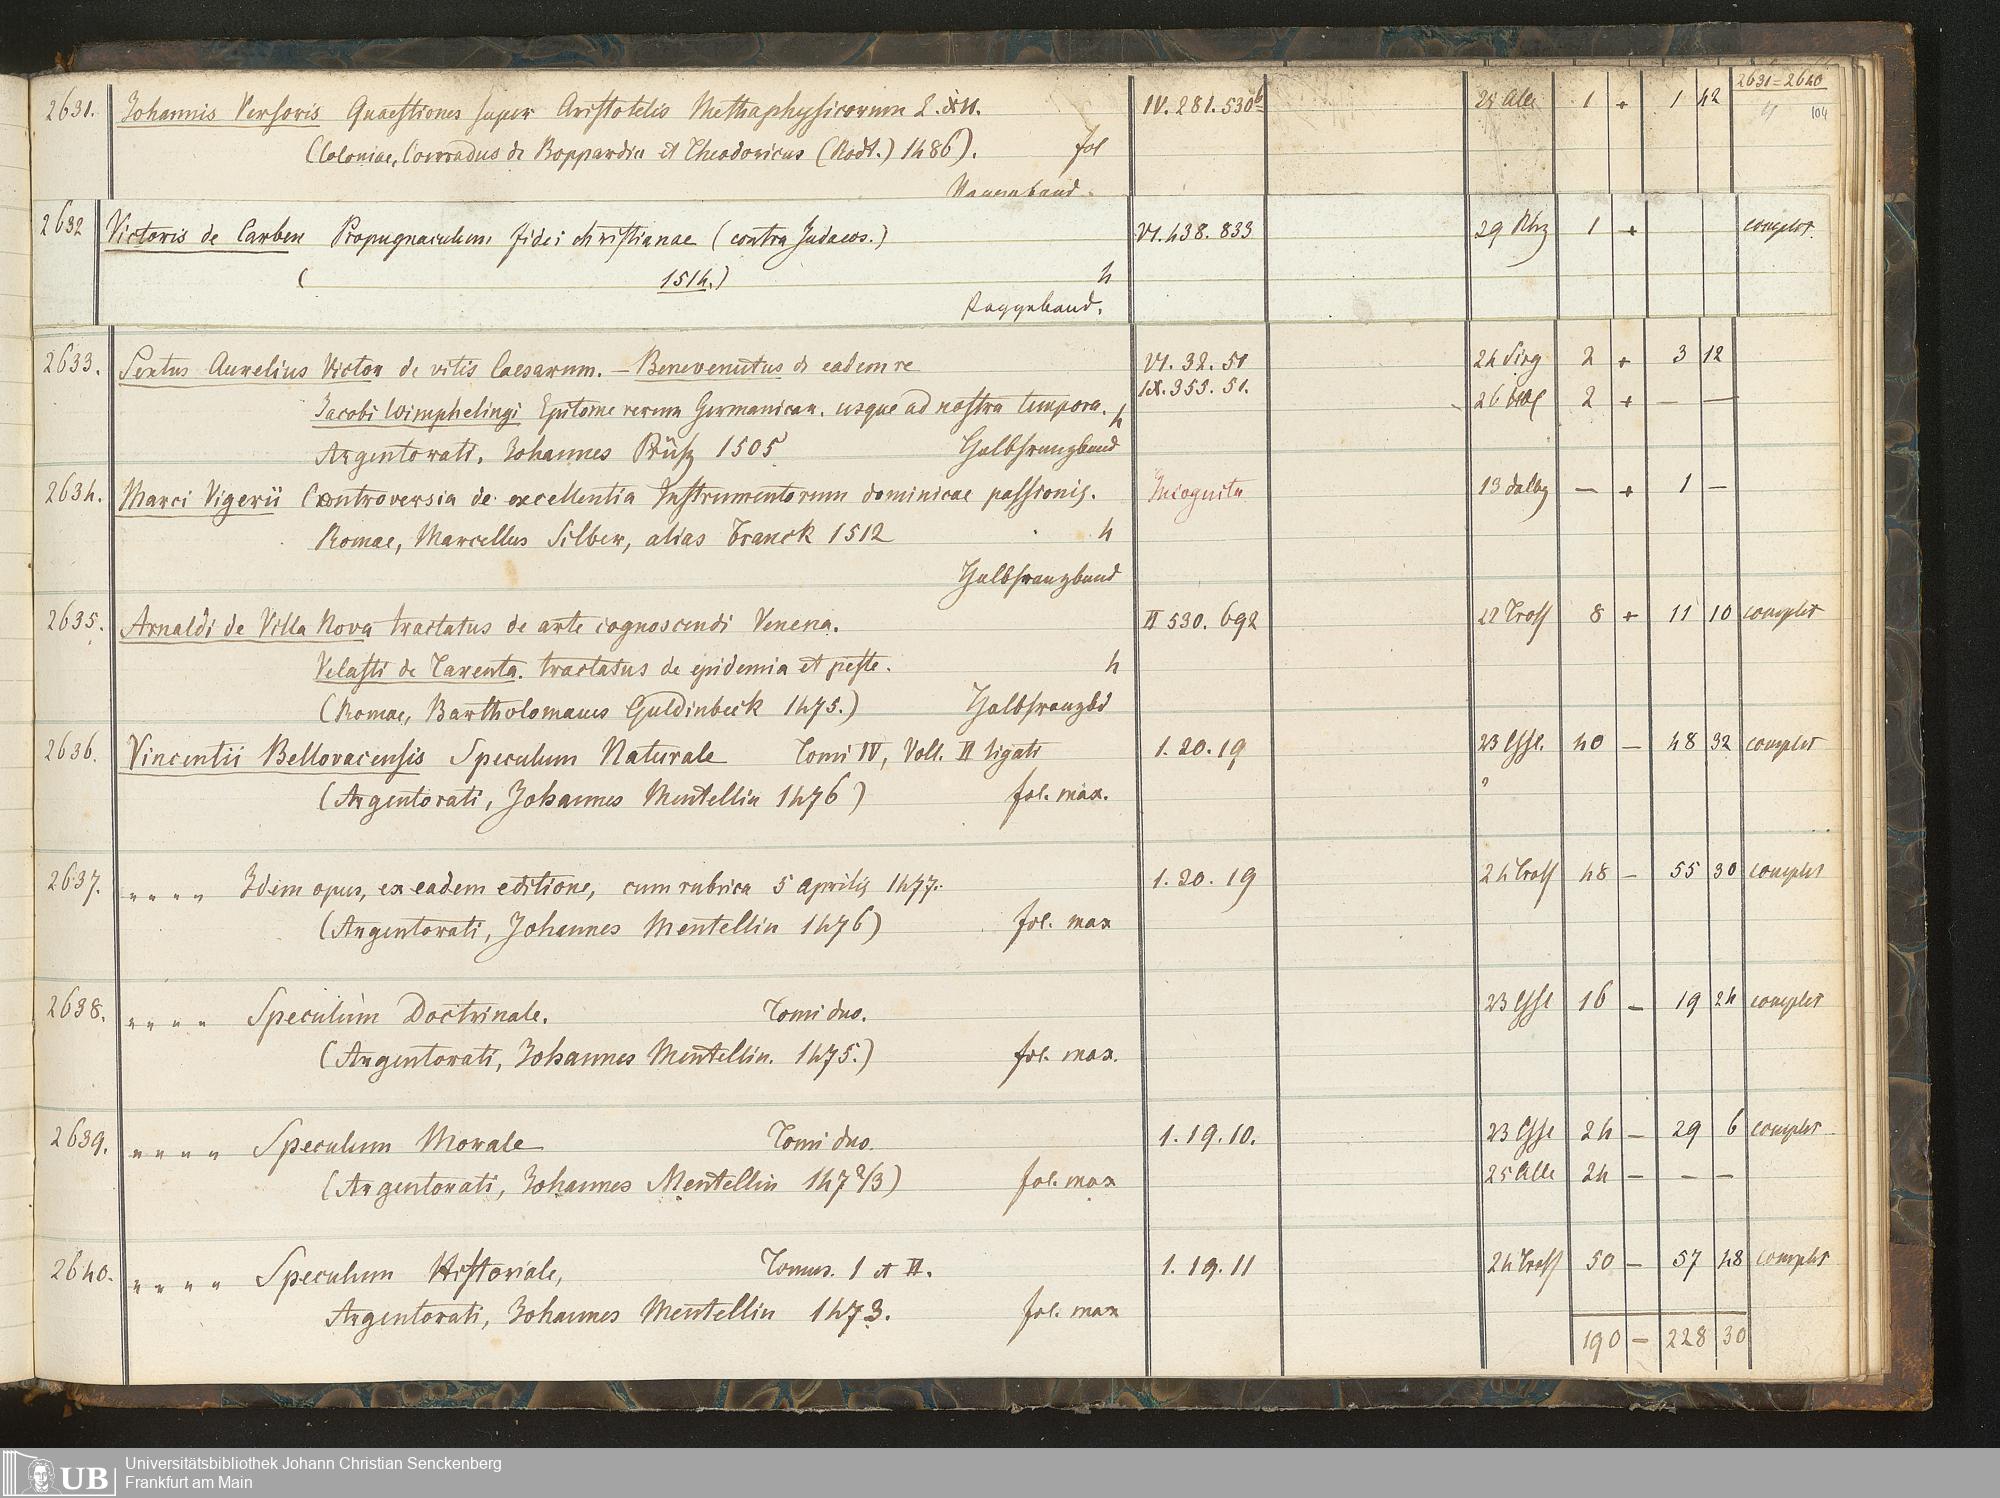 2631=2640
104
2631. Johannis Versoris Quaestiones super Aristotelis Methaphysicorum L. XII. IV. 281. 530b 25 Alle 1 + 1 42
(Coloniae, Conradus de Boppardia et Theodoricus (Rodt.) 1486). fol
2632 Victoris de Carben Propugnaculum fidei christianae (contra Judaeos.) VI. 438. 833 29 1 + complet.
( 1514.) 4
Pappeband.
2633. Sextus Aurelius Victor de vitis Caesarum. – Benevenutus de eadem re VI. 32. 51 2 + 3 12
Jacobi Wimphelingi Epitome rerum Germanicar. usque ad nostra tempora. 4 IX. 353. 51. 26 2 + — —
Argentorati, Johannes Prüß 1505 Halbfranzband
2634. Marci Vigerii Controversia de excellentia Instrumentorum dominicae passionis. Incognita 13 — + 1 —
Romae, Marcellus Silber, alias Franck 1512 4
Halbfranzband
2635. Arnaldi de Villa Nova tractatus de arte cognoscendi Venena. II 530. 692 22 Tross 8 + 11 10 complet
Velasti de Tarenta. tractatus de epidemia et peste. 4
(Romae, Bartholomaeus Guldinbeck 1475.) Halbfranzbd
2636. Vincentii Bellovacensis Speculum Naturale Tomi IV, Voll. II ligati 1. 20. 19 23 40 — 48 32 complet
(Argentorati, Johannes Mentellin 1476) fol. max.
2637. " " " " Idem opus, ex eadem editione, cum rubrica 5 Aprilis 1477. 1. 20. 19 24 Tross 48 — 55 30 complet
(Argentorati, Johannes Mentellin 1476) fol. max
2638. " " " " Speculum Doctrinale. Tomi duo. 23 16 — 19 24 complet
(Argentorati, Johannes Mentellin. 1475.) fol. max.
2639. " " " " Speculum Morale Tomi duo. 1. 19. 10. 23 24 — 29 6 complet
(Argentorati, Johannes Mentellin 147 2/3) fol. max 25 Alle 24 — — —
2640. " " " " Speculum Historiale, Tomus. 1 et II. 1. 19. 11 24 Tross 50 — 57 48 complet
Argentorati, Johannes Mentellin 1473. fol. max
190 — 228 30
UB
Universitätsbibliothek Johann Christian Senckenberg
Frankfurt am Main